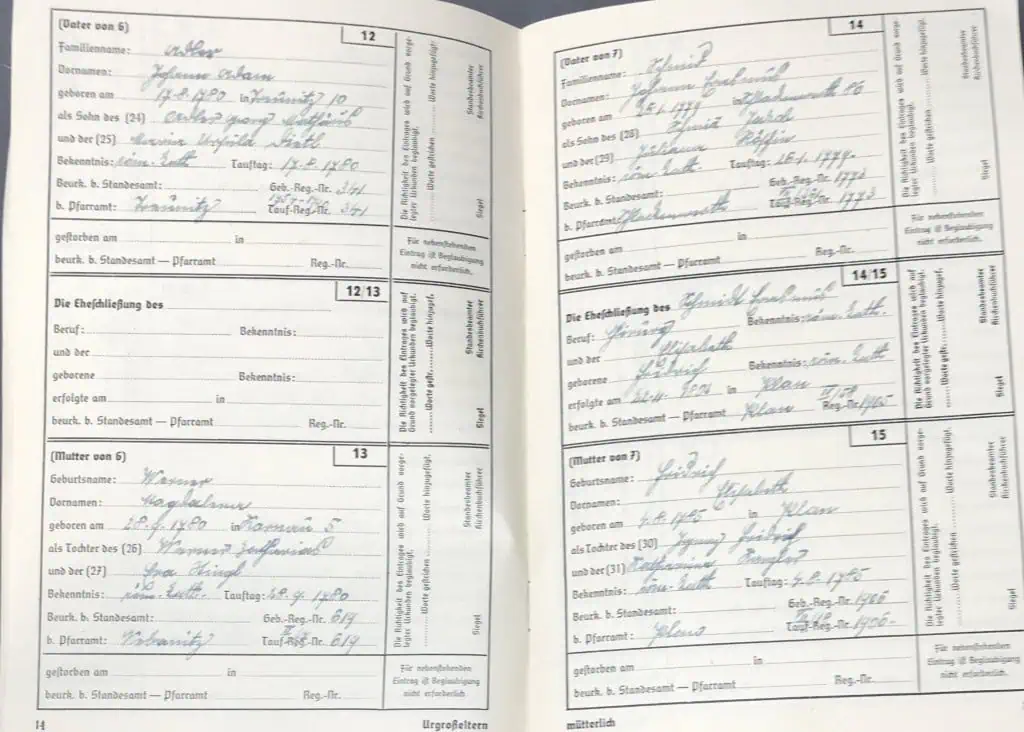 (Vater von 6) 12
Familienname: Adler
Vornamen: Johann Adam
geboren am 17.8.1780 in 10
als Sohn des (24) Adler Georg Matthäus
und der (25) Maria Ursula
Bekenntnis: röm. kath. Tauftag: 17.8.1780
Beurk. b. Standesamt: Geb.-Reg.-Nr. 341
b. Pfarramt: Tauf-Reg.-Nr. 341
gestorben am in
beurk. b. Standesamt — Pfarramt Reg.-Nr.
Die Richtigkeit des Eintrages wird auf Grund vorgelegter Urkunden beglaubigt.
Worte gestrichen Worte hinzugefügt.
Siegel
Standesbeamter
Kirchenbuchführer
Für nebenstehenden
Eintrag ist Beglaubigung
nicht erforderlich.
12/13
Die Eheschließung des
Beruf: Bekenntnis:
und der
geborene Bekenntnis:
erfolgte am in
beurk. b. Standesamt — Pfarramt Reg.-Nr.
Die Richtigkeit des Eintrages wird auf Grund vorgelegter Urkunden beglaubigt.
Worte gestr. Worte hinzugef.
Siegel
Standesbeamter
Kirchenbuchführer
(Mutter von 6) 13
Geburtsname: Werner
Vornamen: Magdalena
geboren am 28.9.1780 in 5
als Tochter des (26) Werner Zacharias
und der (27) Eva
Bekenntnis: röm. kath. Tauftag: 28.9.1780
Beurk. b. Standesamt: Geb.-Reg.-Nr. 619
b. Pfarramt: Tauf-Reg.-Nr. 619
gestorben am in
beurk. b. Standesamt — Pfarramt Reg.-Nr.
Die Richtigkeit des Eintrages wird auf Grund vorgelegter Urkunden beglaubigt.
Worte gestrichen Worte hinzugefügt.
Siegel
Standesbeamter
Kirchenbuchführer
Für nebenstehenden
Eintrag ist Beglaubigung
nicht erforderlich.
14 Urgroßeltern
(Vater von 7) 14
Familienname: Schmid
Vornamen: Johann
geboren am 25.1.1779 in
als Sohn des (28) Schmid
und der (29) Juliana
Bekenntnis: röm. kath. Tauftag: 1.1779
Beurk. b. Standesamt: Geb.-Reg.-Nr. 1773
b. Pfarramt: Tauf-Reg.-Nr. 1773
gestorben am in
beurk. b. Standesamt — Pfarramt Reg.-Nr.
Die Richtigkeit des Eintrages wird auf Grund vorgelegter Urkunden beglaubigt.
Worte gestrichen Worte hinzugefügt.
Siegel
Standesbeamter
Kirchenbuchführer
Für nebenstehenden
Eintrag ist Beglaubigung
nicht erforderlich.
14/15
Die Eheschließung des Schmidt
Beruf: Bekenntnis: röm. kath.
und der Elisabeth
geborene Heidrich Bekenntnis: röm. kath
erfolgte am in Plan
beurk. b. Standesamt — Pfarramt Plan Reg.-Nr. 1905
Die Richtigkeit des Eintrages wird auf Grund vorgelegter Urkunden beglaubigt.
Worte gestr. Worte hinzugef.
Siegel
Standesbeamter
Kirchenbuchführer
(Mutter von 7) 15
Geburtsname: Heidrich
Vornamen: Elisabeth
geboren am 4.8.1785 in Plan
als Tochter des (30) Heidrich
und der (31) Katharina
Bekenntnis: röm. kath. Tauftag: 4.8.1785
Beurk. b. Standesamt: Geb.-Reg.-Nr. 1906
b. Pfarramt: Tauf-Reg.-Nr. 1906
gestorben am in
beurk. b. Standesamt — Pfarramt Reg.-Nr.
Die Richtigkeit des Eintrages wird auf Grund vorgelegter Urkunden beglaubigt.
Worte gestrichen Worte hinzugefügt.
Siegel
Standesbeamter
Kirchenbuchführer
Für nebenstehenden
Eintrag ist Beglaubigung
nicht erforderlich.
mütterlich